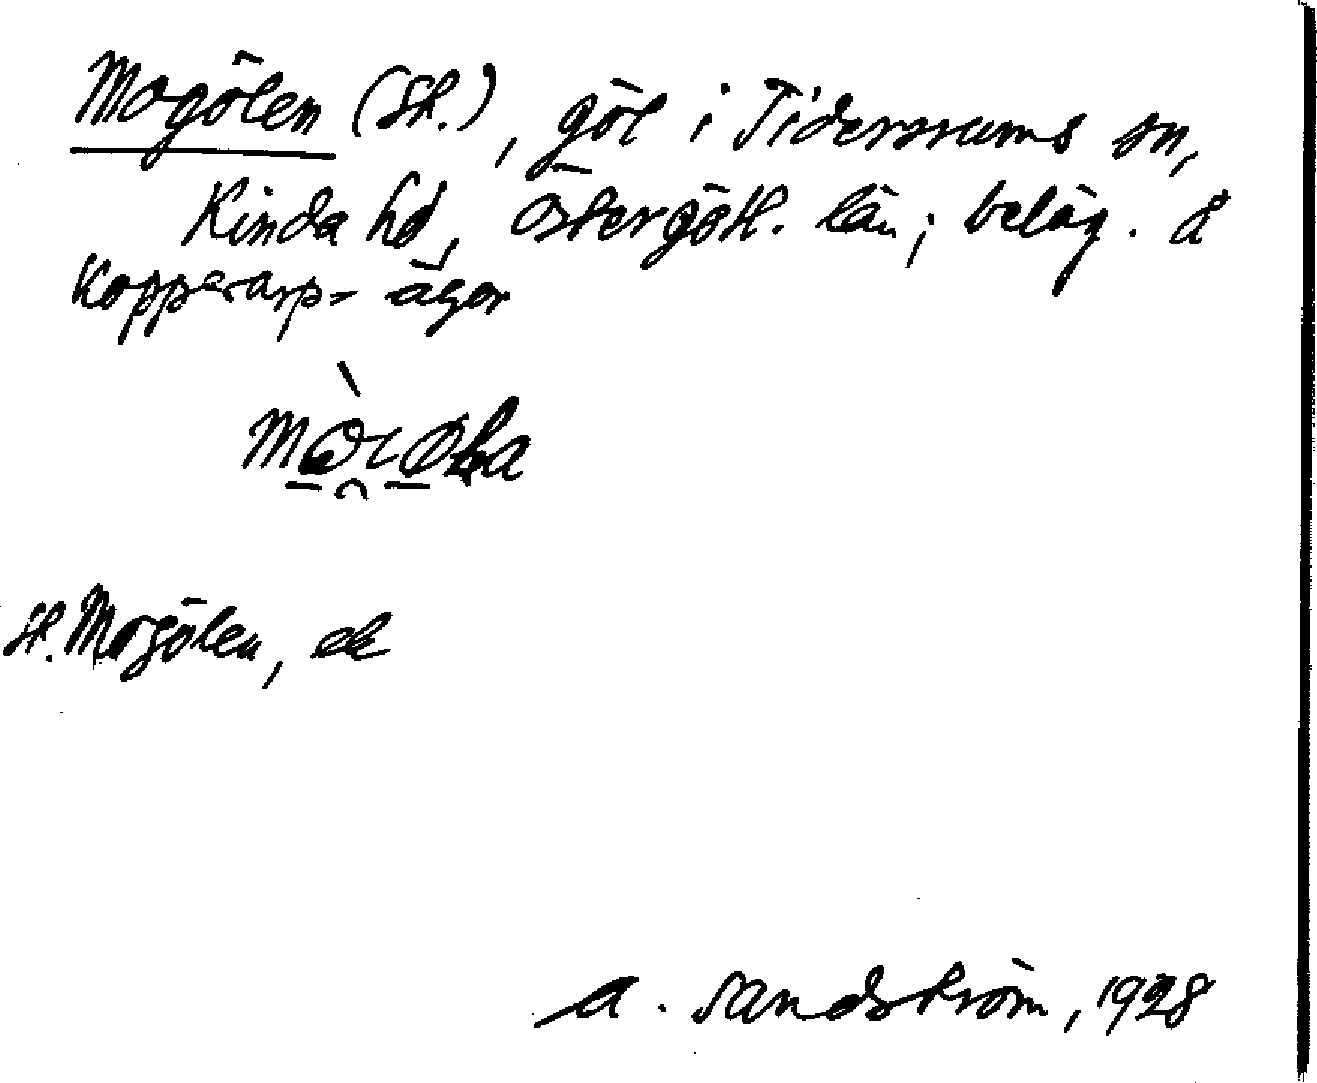 Mogölen (St.), göl i Tidersrums sn,
Kinda hd, Östergötl. län; beläg. å
Koppararp- ägor
St. Mogölen, ek
A. Sandström, 1928